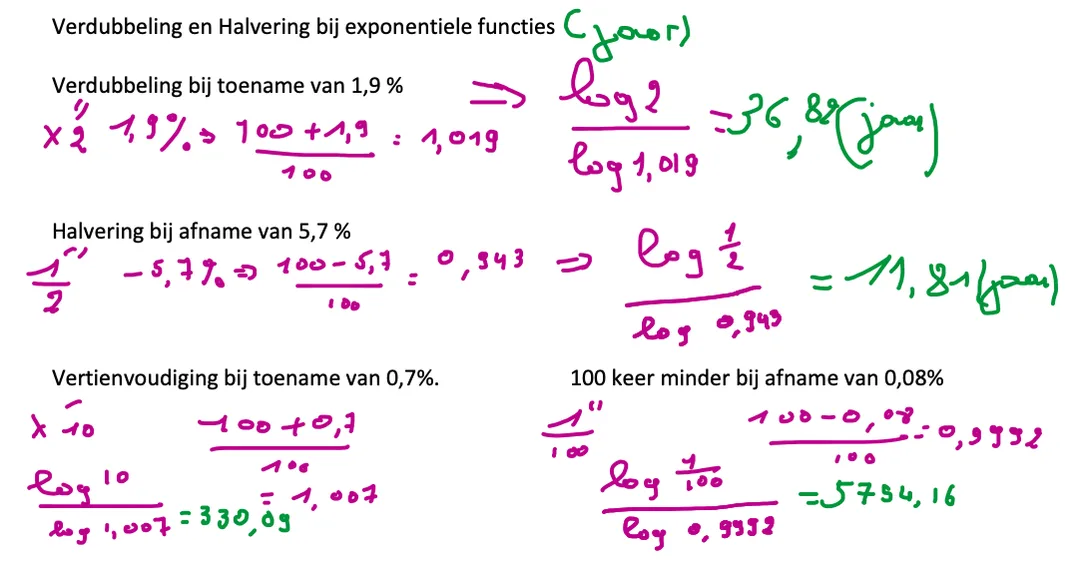 Verdubbeling en Halvering bij exponentiele functies (jaar)
Verdubbeling bij toename van 1,9 % => log 2 / log 1,019 = 36,82 (jaar)
x 2 " 1,9% => 100 + 1,9 / 100 = 1,019
Halvering bij afname van 5,7 %
1/2 " - 5,7% => 100 - 5,7 / 100 = 0,943 => log 1/2 / log 0,943 = 11,81 (jaar)
Vertienvoudiging bij toename van 0,7%.
x 10 100 + 0,7 / 100 = 1,007
log 10 / log 1,007 = 330,09
100 keer minder bij afname van 0,08%
1/100 " 100 - 0,08 / 100 = 0,9992
log 1/100 / log 0,9992 = 5754,16